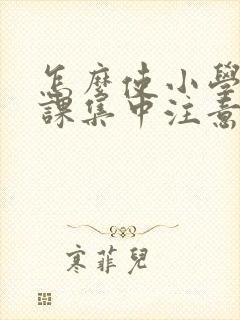 怎麼使小學
課集中注意
寒菲兒